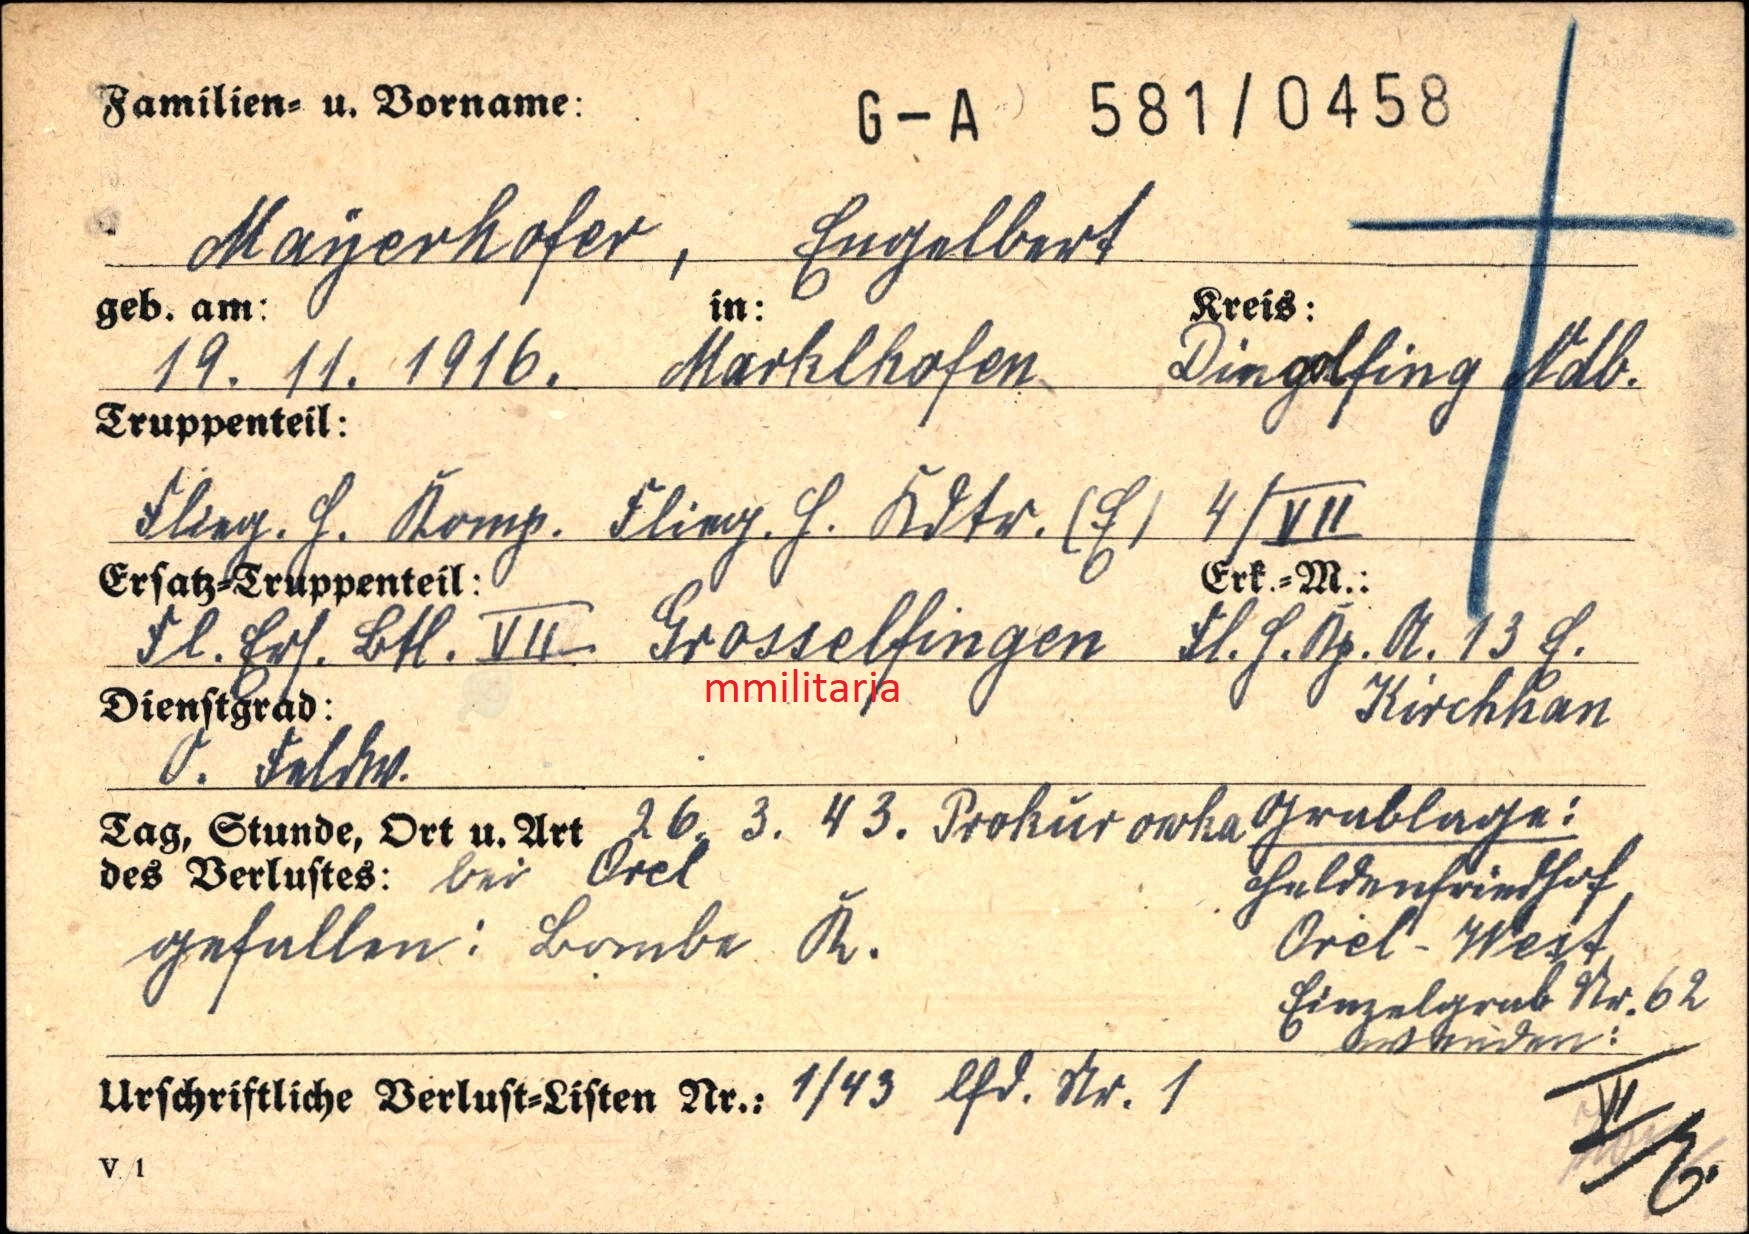 Familien- u. Vorname: G-A 581/0458
Mayerhofer, Engelbert
geb. am: in: Kreis:
19. 11. 1916. Marklhofen Dingolfing Ndb.
Truppenteil:
Flieg. H. Komp. Flieg. H. Kdtr. (E) 4/VII
Ersatz-Truppenteil: Erk.-M.:
Fl. Ers. Btl. VII Grosselfingen Fl. H. Kp. A. 13 E.
mmilitaria
Dienstgrad: Kirchhan
O. Feldw.
Tag, Stunde, Ort u. Art 26. 3. 43. Prokurowka Grablage:
des Verlustes: bei Orel Heldenfriedhof
gefallen: Bombe K. Orel-West
Einzelgrab Nr. 62
Urschriftliche Verlust-Listen Nr.: 1/43 lfd. Nr. 1
V/1